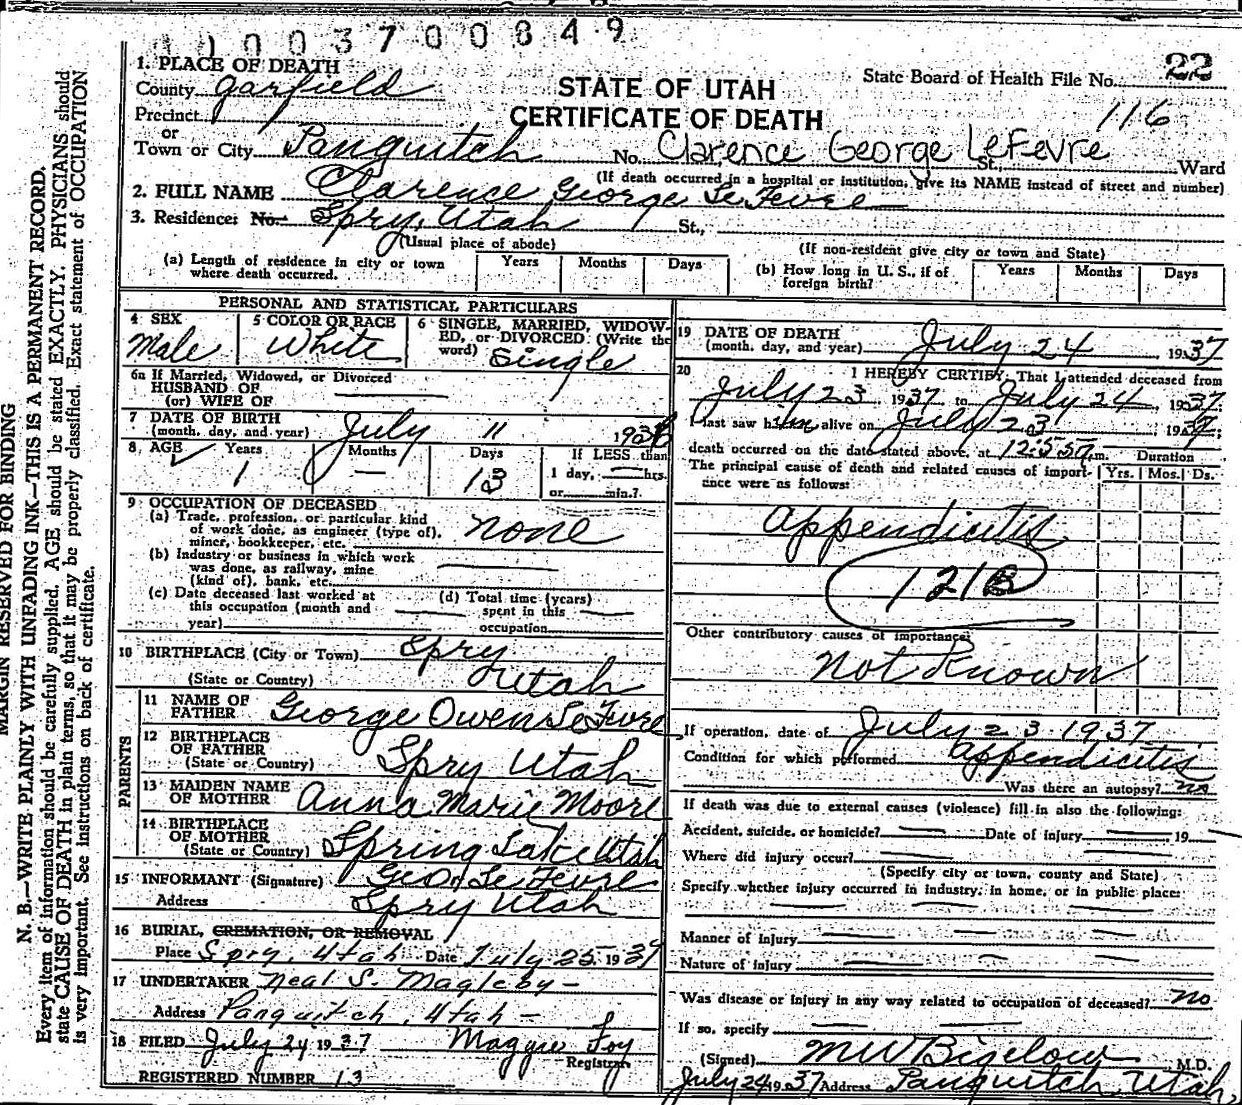 0003700849
1. PLACE OF DEATH
County Garfield
STATE OF UTAH
CERTIFICATE OF DEATH
State Board of Health File No. 22
116
Precinct
or
Town or City Panguitch No. Clarence George LeFevre St., Ward
(If death occurred in a hospital or institution, give its NAME instead of street and number)
2. FULL NAME Clarence George LeFevre
3. Residence: No. Spry, Utah St.,
(Usual place of abode) (If non-resident give city or town and State)
(a) Length of residence in city or town where death occurred. Years Months Days
(b) How long in U. S., if of foreign birth? Years Months Days
PERSONAL AND STATISTICAL PARTICULARS
4 SEX Male
5 COLOR OR RACE White
6 SINGLE, MARRIED, WIDOWED, or DIVORCED (Write the word) Single
6a If Married, Widowed, or Divorced
HUSBAND OF
(or) WIFE OF
7 DATE OF BIRTH
(month, day, and year) July 11 1936
8 AGE Years 1 Months — Days 13 If LESS than 1 day, hrs. or min.?
9 OCCUPATION OF DECEASED
(a) Trade, profession, or particular kind of work done, as engineer (type of), miner, bookkeeper, etc. none
(b) Industry or business in which work was done, as railway, mine (kind of), bank, etc.
(c) Date deceased last worked at this occupation (month and year)
(d) Total time (years) spent in this occupation
10 BIRTHPLACE (City or Town) Spry
(State or Country) Utah
PARENTS
11 NAME OF FATHER George Owen LeFevre
12 BIRTHPLACE OF FATHER
(State or Country) Spry Utah
13 MAIDEN NAME OF MOTHER Anna Marie Moore
14 BIRTHPLACE OF MOTHER
(State or Country) Spring Lake Utah
15 INFORMANT (Signature) Geo. LeFevre
Address Spry Utah
16 BURIAL, CREMATION, OR REMOVAL
Place Spry, Utah Date July 25 1937
17 UNDERTAKER Neal S. Magleby
Address Panguitch, Utah
18 FILED July 24 1937 Maggie Foy
Registrar
REGISTERED NUMBER 13
19 DATE OF DEATH
(month, day, and year) July 24 1937
20 I HEREBY CERTIFY, That I attended deceased from
July 23 1937 to July 24, 1937
I last saw him alive on July 23, 1937,
death occurred on the date stated above, at 12:55 a.m. Duration
The principal cause of death and related causes of importance were as follows: Yrs. Mos. Ds.
Appendicitis
121B
Other contributory causes of importance:
Not Known
If operation, date of July 23 1937
Condition for which performed Appendicitis
Was there an autopsy? no
If death was due to external causes (violence) fill in also the following:
Accident, suicide, or homicide? Date of injury 19
Where did injury occur?
(Specify city or town, county and State)
Specify whether injury occurred in industry, in home, or in public place:
Manner of injury
Nature of injury
Was disease or injury in any way related to occupation of deceased? no
If so, specify
(Signed) M W Bigelow M.D.
July 24 1937 Address Panguitch, Utah,
MARGIN RESERVED FOR BINDING
N. B.—WRITE PLAINLY WITH UNFADING INK—THIS IS A PERMANENT RECORD.
Every item of information should be carefully supplied. AGE should be stated EXACTLY. PHYSICIANS should
state CAUSE OF DEATH in plain terms, so that it may be properly classified. Exact statement of OCCUPATION
is very important. See instructions on back of certificate.